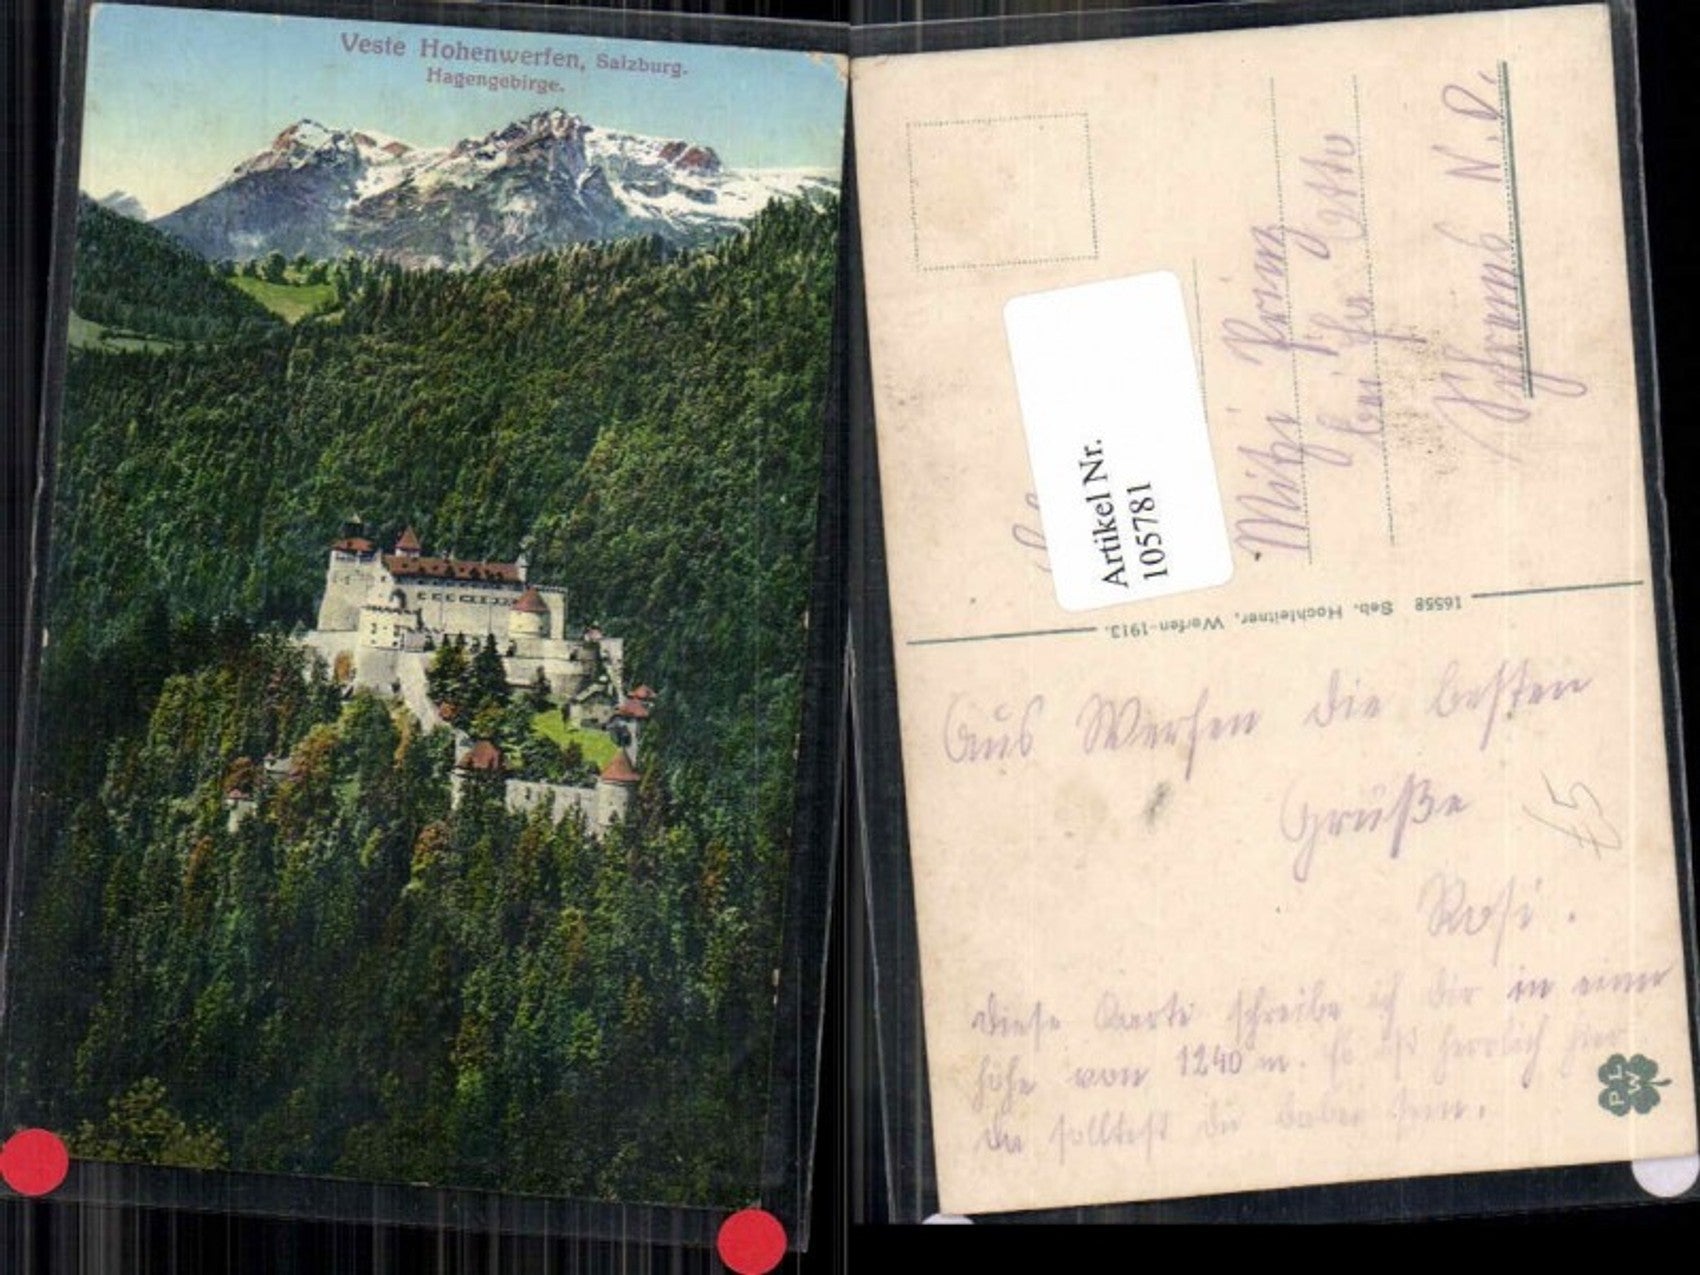 Veste Hohenwerfen, Salzburg.
Hagengebirge.
Artikel Nr.
105781
Mitzi Prinz
bei
Schrams N.Ö.
16558 Seb. Hochleitner, Werfen-1913.
Aus Werfen die besten
Grüße
Rosi.
£5
Diese Karte schreibe ich Dir in einer
Höhe von 1240 m. Es ist herrlich hier
Du solltest Du dabei sein.
PWL